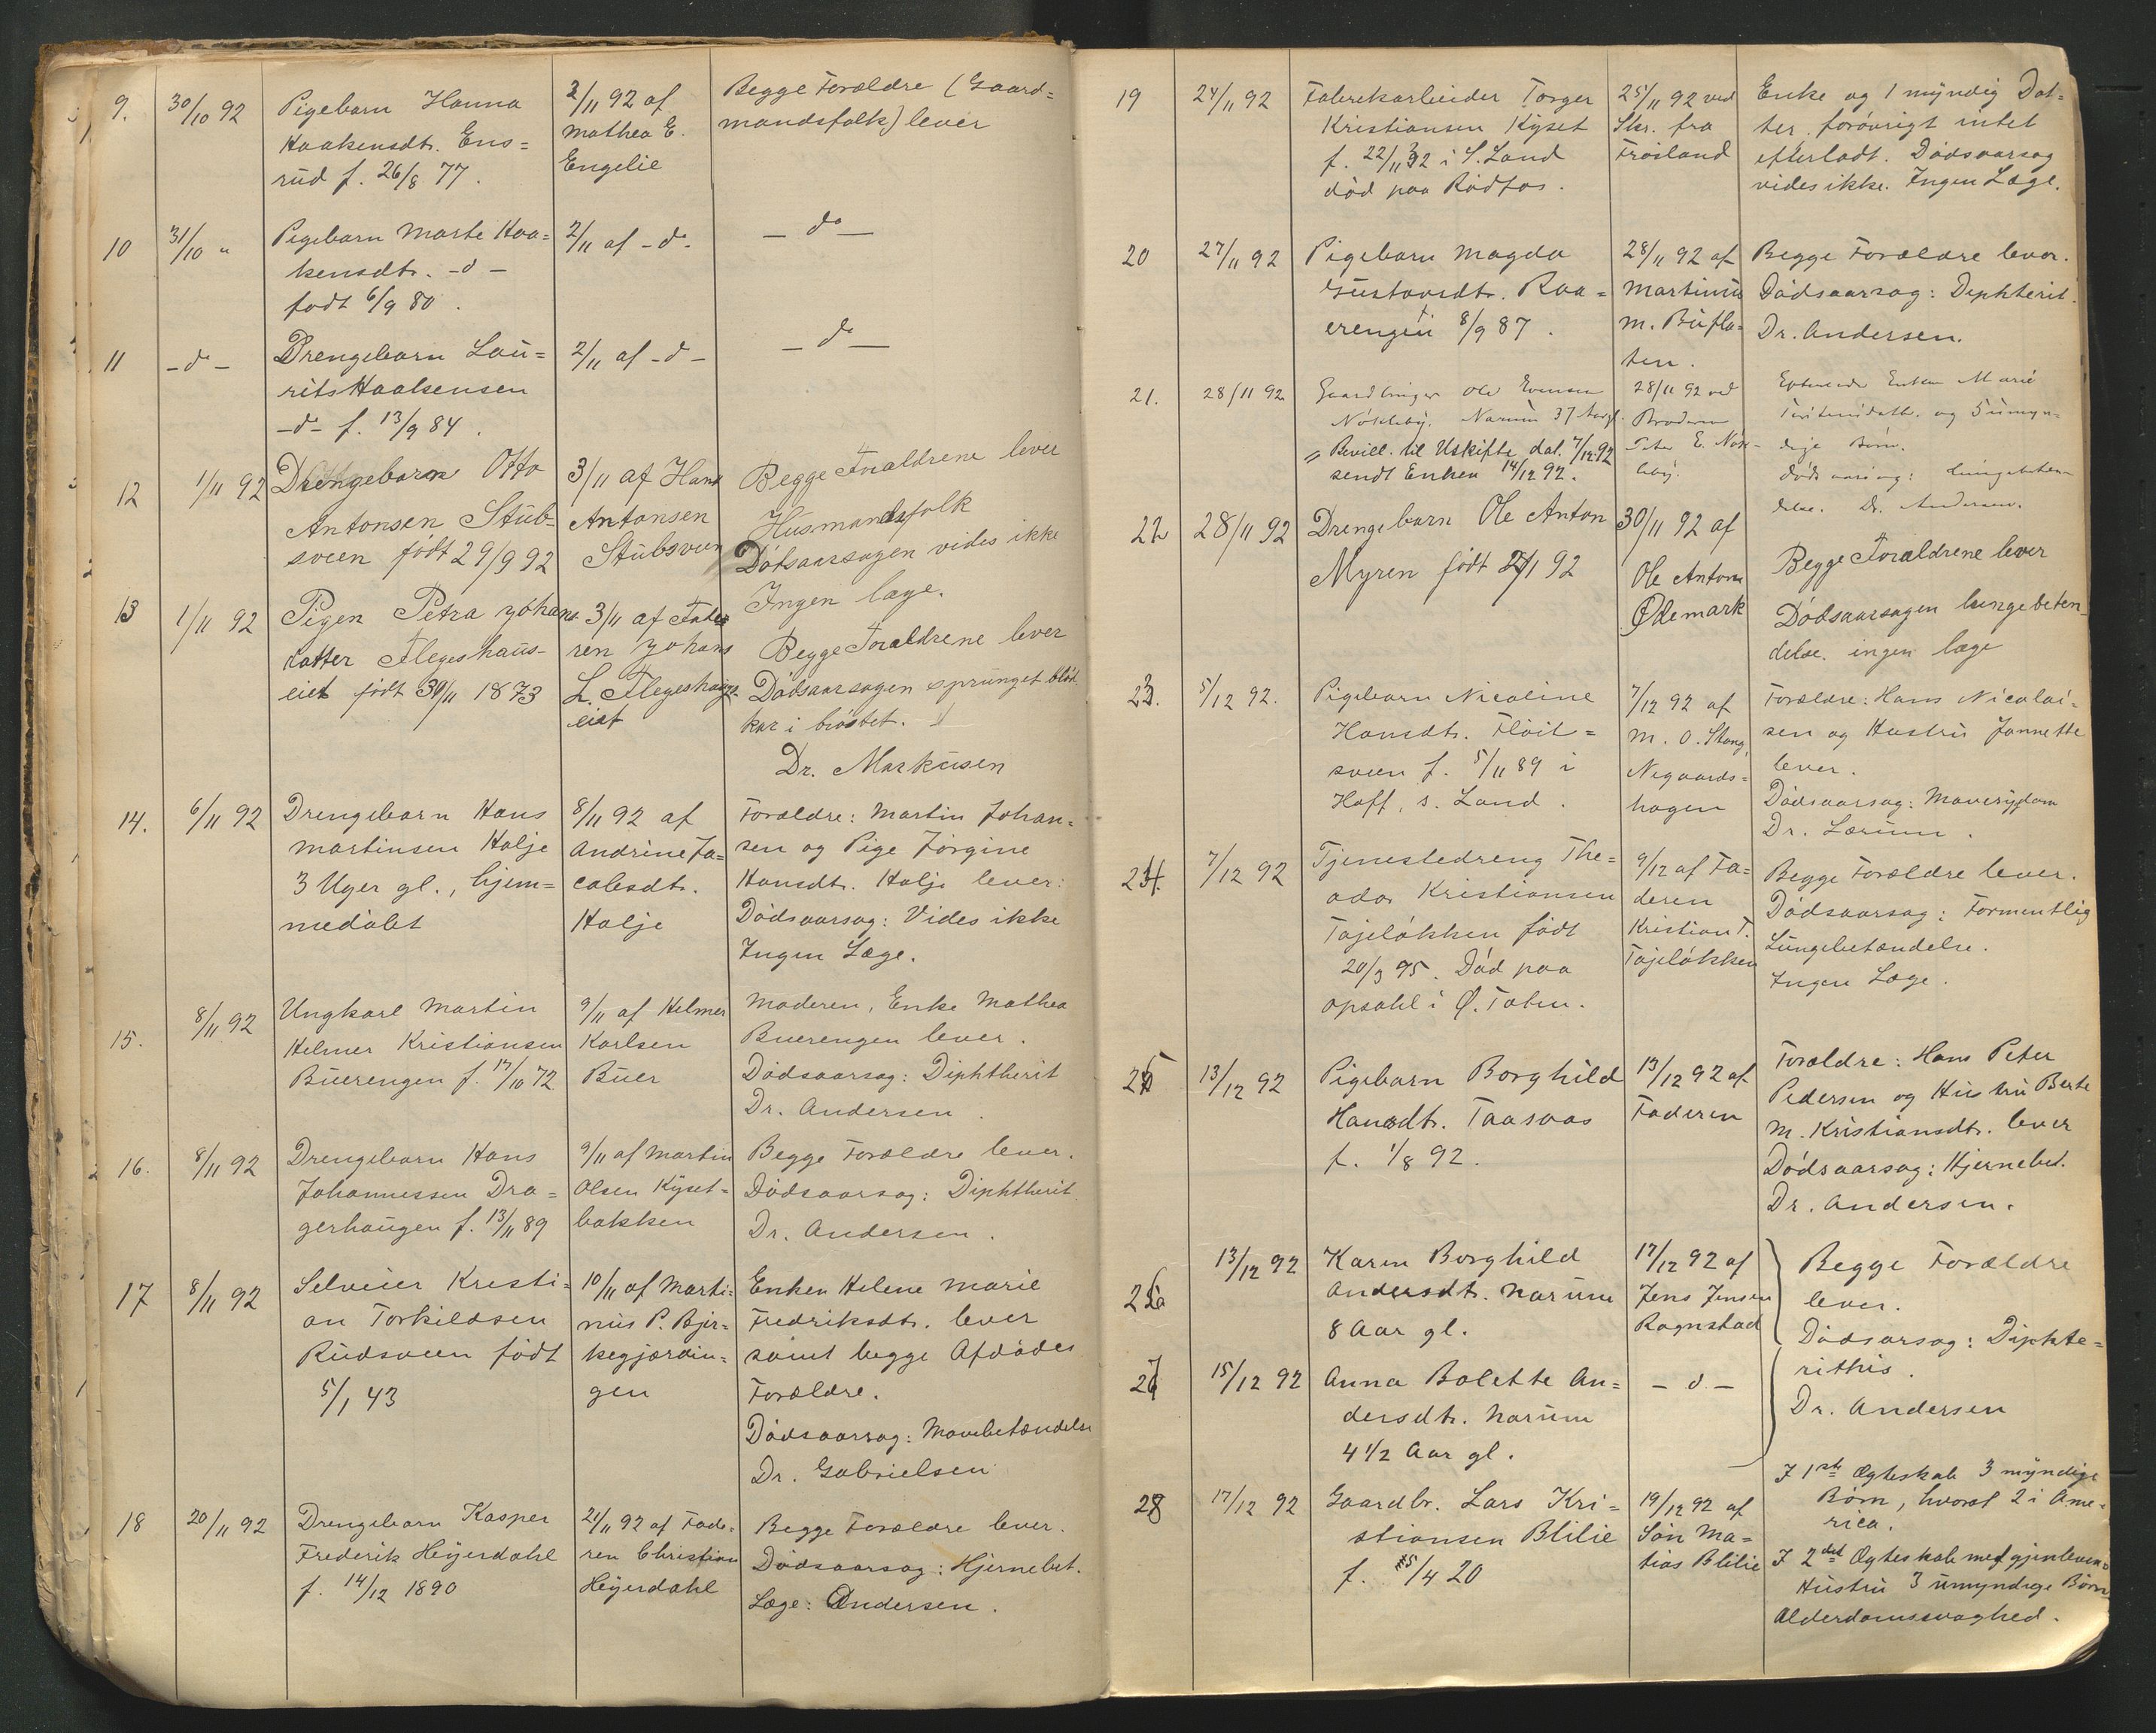 9.
30/10 92
Pigebarn Hanna
Haakensdt. Ens=
rud f. 26/8 77.
2/11 92 af
Mathea E.
Engelie
Begge Forældre (Gaard=
mandsfolk) lever
10
31/10 "
Pigebarn Marte Haa=
kensdtr. -d-
født 6/9 80.
2/11 af -d-
- do -
11
-d-
Drengebarn Lau=
rits Haakensen
-d- f. 13/9 84.
2/11 af -d-
- do -
12
1/11 92
Drengebarn Otto
Antonsen Stub-
sveen født 29/9 92
3/11 af Hans
Antonsen
Stubsveen
Begge Forældrene lever
Husmandsfolk
Dødsaarsagen vides ikke
Ingen læge.
13
1/11 92
Pigen Petra Johans
datter Flegeshaus-
eiet født 30/11 1873
3/11 af Fade
ren Johans
L. Flegeshaugs-
eiet
Begge Forældrene lever
Dødsaarsagen sprunget blod
kar i brøstet.
Dr. Markusen
14.
6/11 92
Drengebarn Hans
Martinsen Halje
3 Uger gl., hjem=
medøbt
8/11 92 af
Andrine Ja=
cobsdt.
Halje
Forældre: Martin Johan=
sen og Pige Jørgine
Hansdt. Halje lever:
Dødsaarsag: Vides ikke
Ingen Læge.
15.
8/11 92
Ungkarl Martin
Helmer Kristiansen
Buerengen f. 17/10 72
9/11 af Helmer
Karlsen
Buer
Moderen, Enke Mathea
Buerengen lever.
Dødsaarsag: Diphtherit
Dr. Andersen.
16.
8/11 92
Drengebarn Hans
Johannessen Dra=
gerhaugen f. 13/11 89
9/11 af Martin
Olsen Kyset=
bakken
Begge Forældre lever.
Dødsaarsag: Diphtherit.
Dr. Andersen.
17
8/11 92
Selveier Kristi=
an Torkildsen
Rudsveen født
5/1 43
10/11 af Marti=
nius P. Bjer=
kegjærdin=
gen
Enken Helene Marie
Fredriksdtr. lever
samt begge Afdødes
Forældre.
Dødsaarsag: Mavebetændelse
Dr. Gabrielsen
18
20/11 92
Drengebarn Kasper
Frederik Heyerdahl
f. 14/12 1890
21/11 92 af Fade=
ren Christian
Heyerdahl
Begge Forældre lever.
Dødsaarsag: Hjernebet.
Læge: Andersen.
19
24/11 92
Fabrikarbeider Torger
Kristiansen Kyset
f. 22/11 32 i S. Land
død paa Rødfos.
25/11 92 ved
Skr. fra
Frøiland
Enke og 1 myndig Dat=
ter. forøvrigt intet
efterladt. Dødsaarsag
vides ikke. Ingen Læge.
20
27/11 92
Pigebarn Magda
Gustavsdt. Raa=
erengen 8/9 87.
28/11 92 af
Martinus
M. Bufla=
ten.
Begge Forældre lever.
Dødsaarsag: Diphterit.
Dr. Andersen.
21.
28/11 92
Gaardbruger Ole Evensen
Nøkleby. Narum 37 Aar gl.
= Bevill. til Uskifte dat. 7/12 92
sendt Enken 14/12 92.
28/11 92 ved
Broderen
Peter E. Nøk-
leby.
Enken Marie
og 5 umyn=
dige Børn.
Dødsaarsag: Lungebetæn-
delse. Dr. Andersen.
22
28/11 92
Drengebarn Ole Anton
Myren født 2/1 92
30/11 92 af
Ole Anton
Ødemark
Begge Forældrene lever
Dødsaarsagen lungebeten
delse. ingen læge
23.
5/12 92.
Pigebarn Nicoline
Hansdt. Fløit=
sveen f. 5/11 89 i
Hoff, s. Land.
7/12 92 af
M. O. Stang,
Nygaards=
hagen
Forældre: Hans Nicolai=
sen og Hustru Jannette
lever.
Dødsaarsag: Mavesygdom
Dr. Lærum.
24.
7/12 92
Tjenestedreng The=
odor Kristiansen
Tajeløkken født
20/3 95. Død paa
Opsahl i Ø. Toten.
9/12 af Fa=
deren
Kristian T.
Tajeløkken
Begge Forældre lever.
Dødsaarsag: Formentlig
Lungebetændelse.
Ingen Læge.
25
13/12 92
Pigebarn Borghild
Hansdt. Taasaas
f. 1/8 92.
13/12 92 af
Faderen
Forældre: Hans Peter
Pedersen og Hustru Berte
M. Kristiansdtr. lever
Dødsaarsag: Hjernebet.
Dr. Andersen.
26
13/12 92
Karen Borghild
Andersdt. Narum
8 Aar gl.
17/12 92 af
Jens Jensen
Rognstad
Begge Forældre
lever.
Dødsarsag: Diphte=
rithis.
Dr. Andersen
27
15/12 92
Anna Bolette An=
dersdt. Narum
4 1/2 Aar gl.
- d -
28
17/12 92
Gaardbr. Lars Kri=
stiansen Blilie
f. 25/4 20
19/12 92 af
Søn Ma=
tias Blilie
I 1ste Ægteskab 3 myndige
Børn, hvoraf 2 i Ame=
rica.
I 2det Ægteskab med gjenlevende
Hustru 3 umyndige Børn
Alderdomssvaghed.